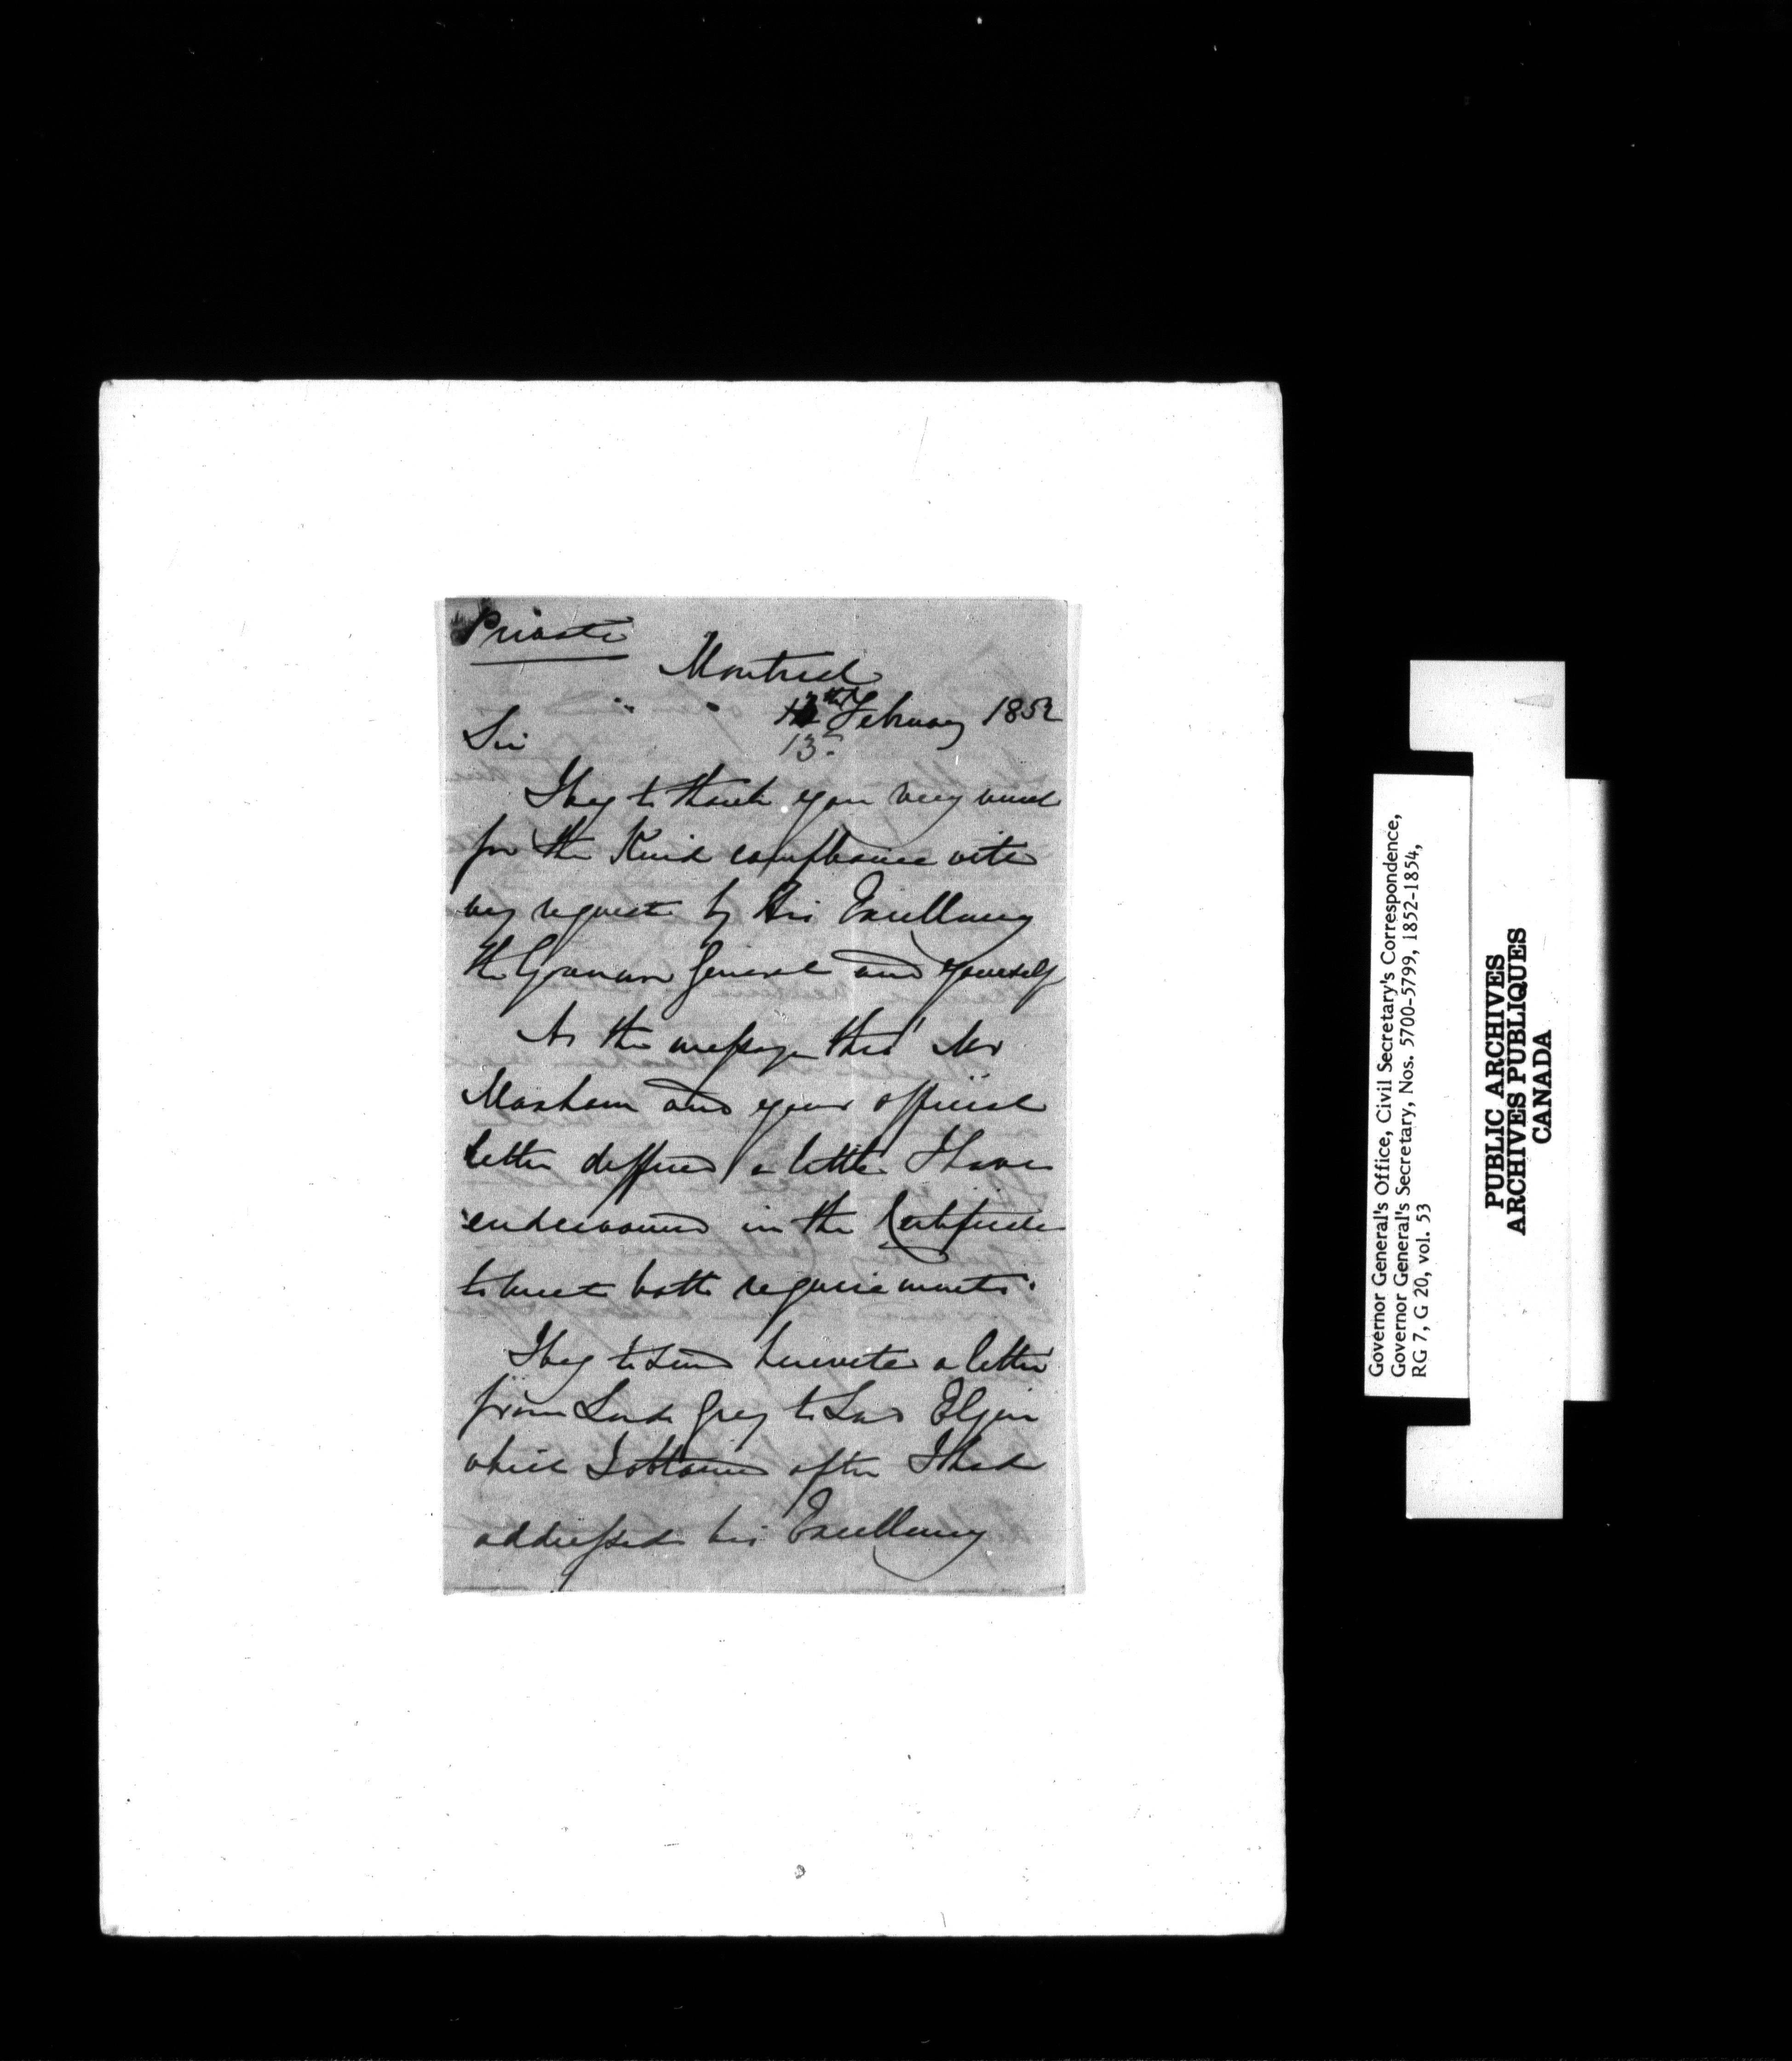 Private
Montreal
12th February 1852
13.
Sir
I beg to thank you very much
for the kind compliance with
my request by His Excellency
the Governor General and yourself
As the message thro' Mr
Markham and your official
letter differed a little I have
endeavoured in the Certificate
to meet both requirements.
I beg to send herewith a letter
from Lord Grey to Lord Elgin
which I obtained after I had
addressed his Excellency
Governor General's Office, Civil Secretary's Correspondence,
Governor General's Secretary, Nos. 5700-5799, 1852-1854,
RG 7, G 20, vol. 53
PUBLIC ARCHIVES
ARCHIVES PUBLIQUES
CANADA